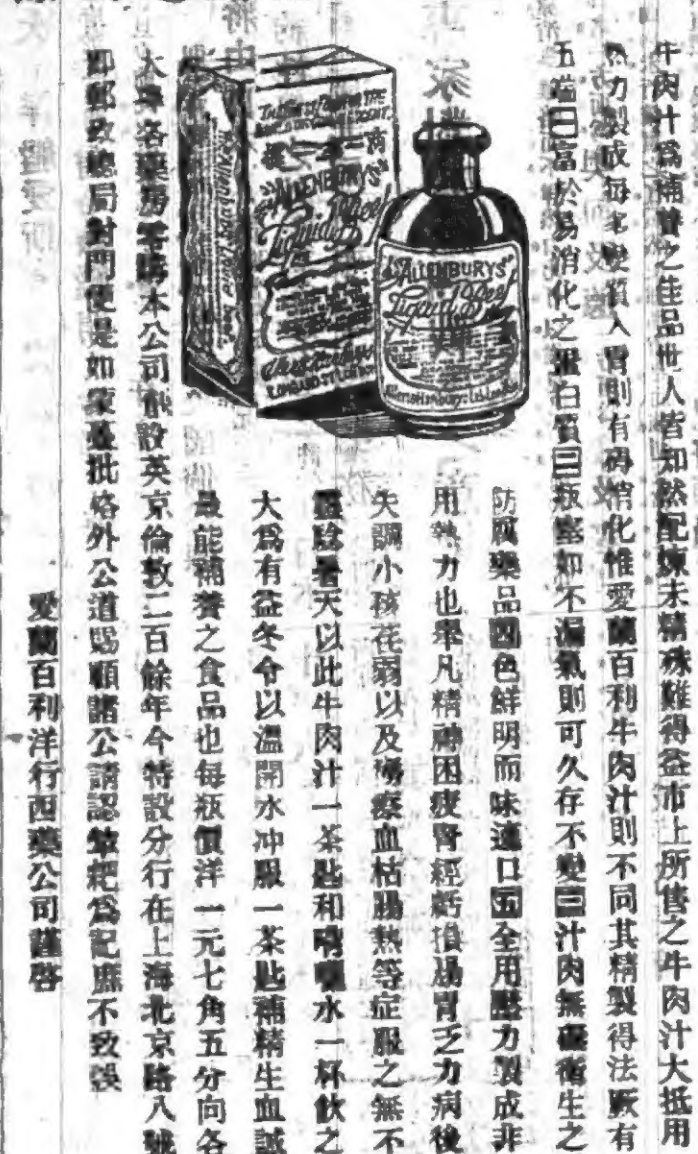 牛肉汁爲補養之佳品世人皆知然配煉未精殊難得益市上所售之牛肉汁大抵用
熱力製成每多變質入胃則有碍消化惟愛蘭百利牛肉汁則不同其精製得法厥有
五端曰富於易消化之蛋白質曰瓶塞如不漏氣則可久存不變曰汁肉無礙衛生之
防腐藥品四色鮮明而味適口五全用壓力製成非
用熱力也舉凡精神困疲腎經虧損腸胃乏力病後
失調小孩荏弱以及癆瘵血枯腸熱等症服之無不
靈驗暑天以此牛肉汁一茶匙和嗬囒水一杯飲之
大爲有益冬令以溫開水冲服一茶匙補精生血誠
最能補養之食品也每瓶價洋一元七角五分向各
大埠各藥房零購本公司創設英京倫敦二百餘年今特設分行在上海北京路八號
即郵政總局對門便是如蒙躉批格外公道賜顧諸公請認犂耙爲記庶不致誤
愛蘭百利洋行西藥公司謹啓
"ALLENBURYS"
Liquid Beef
LOMBARD ST LONDON
Allenburys Liquid Beef
"ALLENBURYS"
Liquid Beef
Allen & Hanburys Ltd London